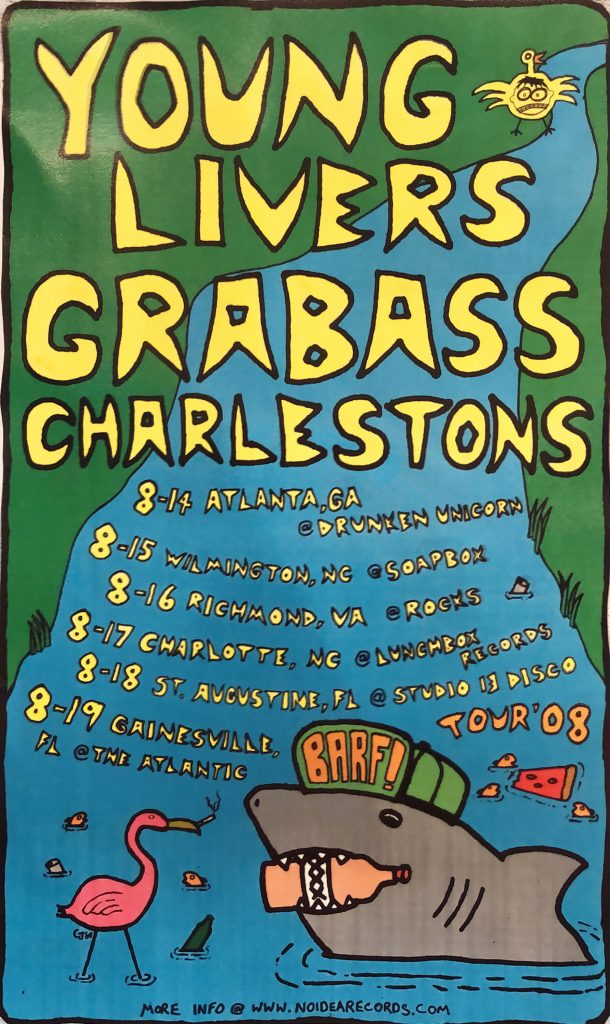 YOUNG
LIVERS
GRABASS
CHARLESTONS
8-14 ATLANTA, GA
@ DRUNKEN UNICORN
8-15 WILMINGTON, NC @ SOAPBOX
8-16 RICHMOND, VA @ ROCKS
8-17 CHARLOTTE, NC @ LUNCHBOX
RECORDS
8-18 ST. AUGUSTINE, FL @ STUDIO 13 DISCO
8-19 GAINESVILLE,
FL @ THE ATLANTIC
TOUR '08
BARF!
CJW
MORE INFO @ WWW.NOIDEARECORDS.COM